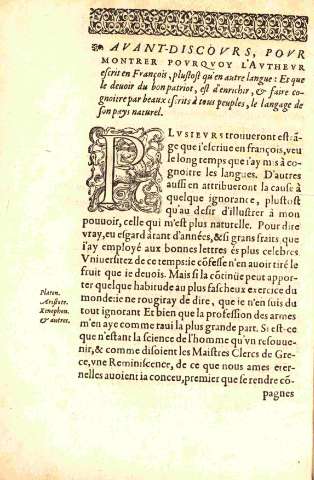 AVANT-DISCOVRS, POVR
MONTRER POVRQVOY L'AVTHEVR
escrit en François, plustost qu'en autre langue: Et que
le deuoir du bon patriot, est d'enrichir, & faire co-
gnoitre par beaux escrits à tous peuples, le langage de
son pays naturel.
PLVSIEVRS trouueront estrã-
ge que i'escriue en françois, veu
le long temps que i'ay mis à co-
gnoitre les langues. D'autres
aussi en attribueront la cause à
quelque ignorance, plustost
qu'au desir d'illustrer à mon
pouuoir, celle qui m'est plus naturelle. Pour dire
vray, eu esgard à tant d'années, & si grans fraits que
i'ay employé aux bonnes lettres és plus celebres
Vniuersitez de ce temps: ie cõfesse n'en auoir tiré le
fruit que ie deuois. Mais si la cõtinüe peut appor-
ter quelque habitude au plus fascheux exercice du
monde: ie ne rougiray de dire, que ie n'en suis du
tout ignorant Et bien que la profession des armes
m'en aye comme raui la plus grande part. Si est-ce
que n'estant la science de l'homme qu'vn resouue-
nir, & comme disoient les Maistres Clercs de Gre-
ce, vne Reminiscence, de ce que nous ames eter-
nelles auoient ia conceu, premier que se rendre cõ-
pagnes
Platon.
Aristote.
Xenophon.
& autres.